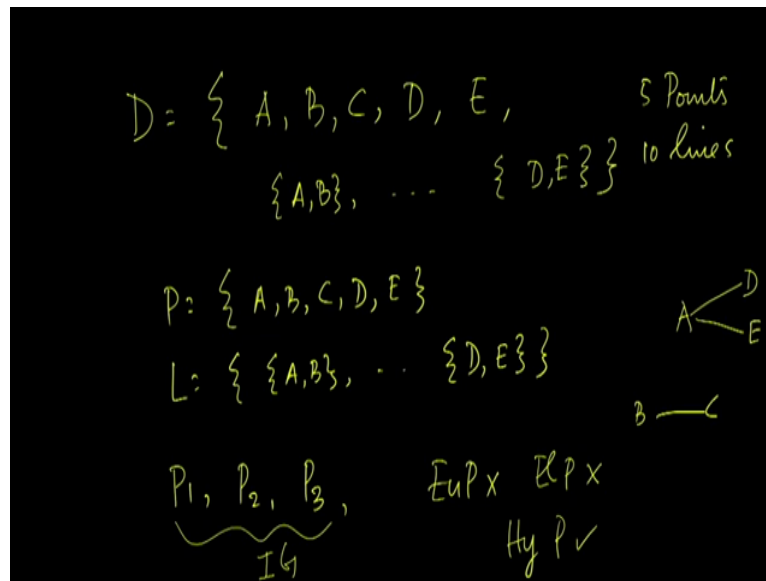 D = { A, B, C, D, E,
{A,B}, ... { D,E}}
5 Points
10 lines
P = { A, B, C, D, E}
L = { {A,B}, .. {D,E}}
A D
E
B — C
P1, P2, P3,
IG
EuP x ElP x
Hy P ✓